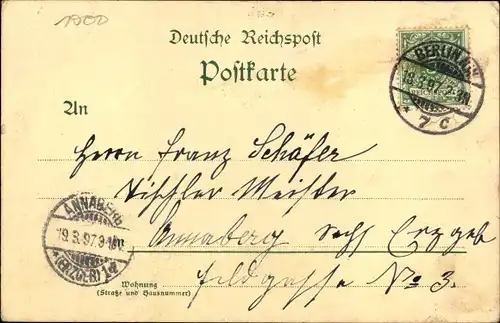 1900
Deutsche Reichspost
Postkarte
BERLIN N.W.
18.3.97. 2-3N.
* 7 c
An
Herrn Franz Schäfer
Tischler Meister
Annaberg Sachs Erzgeb
Feldgasse No 3.
ANNABERG
19.3.97.9-
*(ERZGEB)1d
Wohnung
(Straße und Hausnummer)